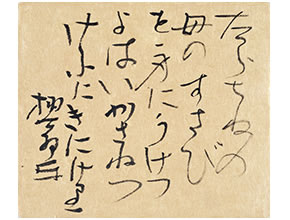 たらちねの
母のすさび
を身にうけつ
よはいかさねつ
けふにきにけり